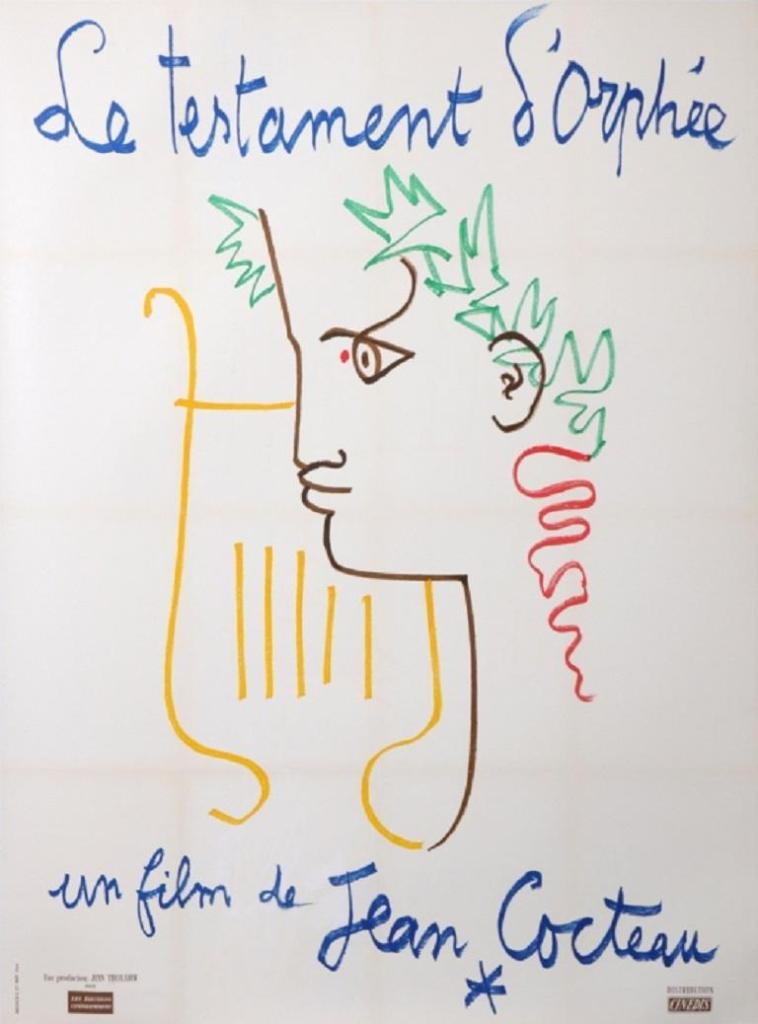 Le testament d'Orphée
un film de Jean Cocteau
Une production JEAN THUILLIER
LES EDITIONS
CINÉGRAPHIQUES
DISTRIBUTION
CINEDIS